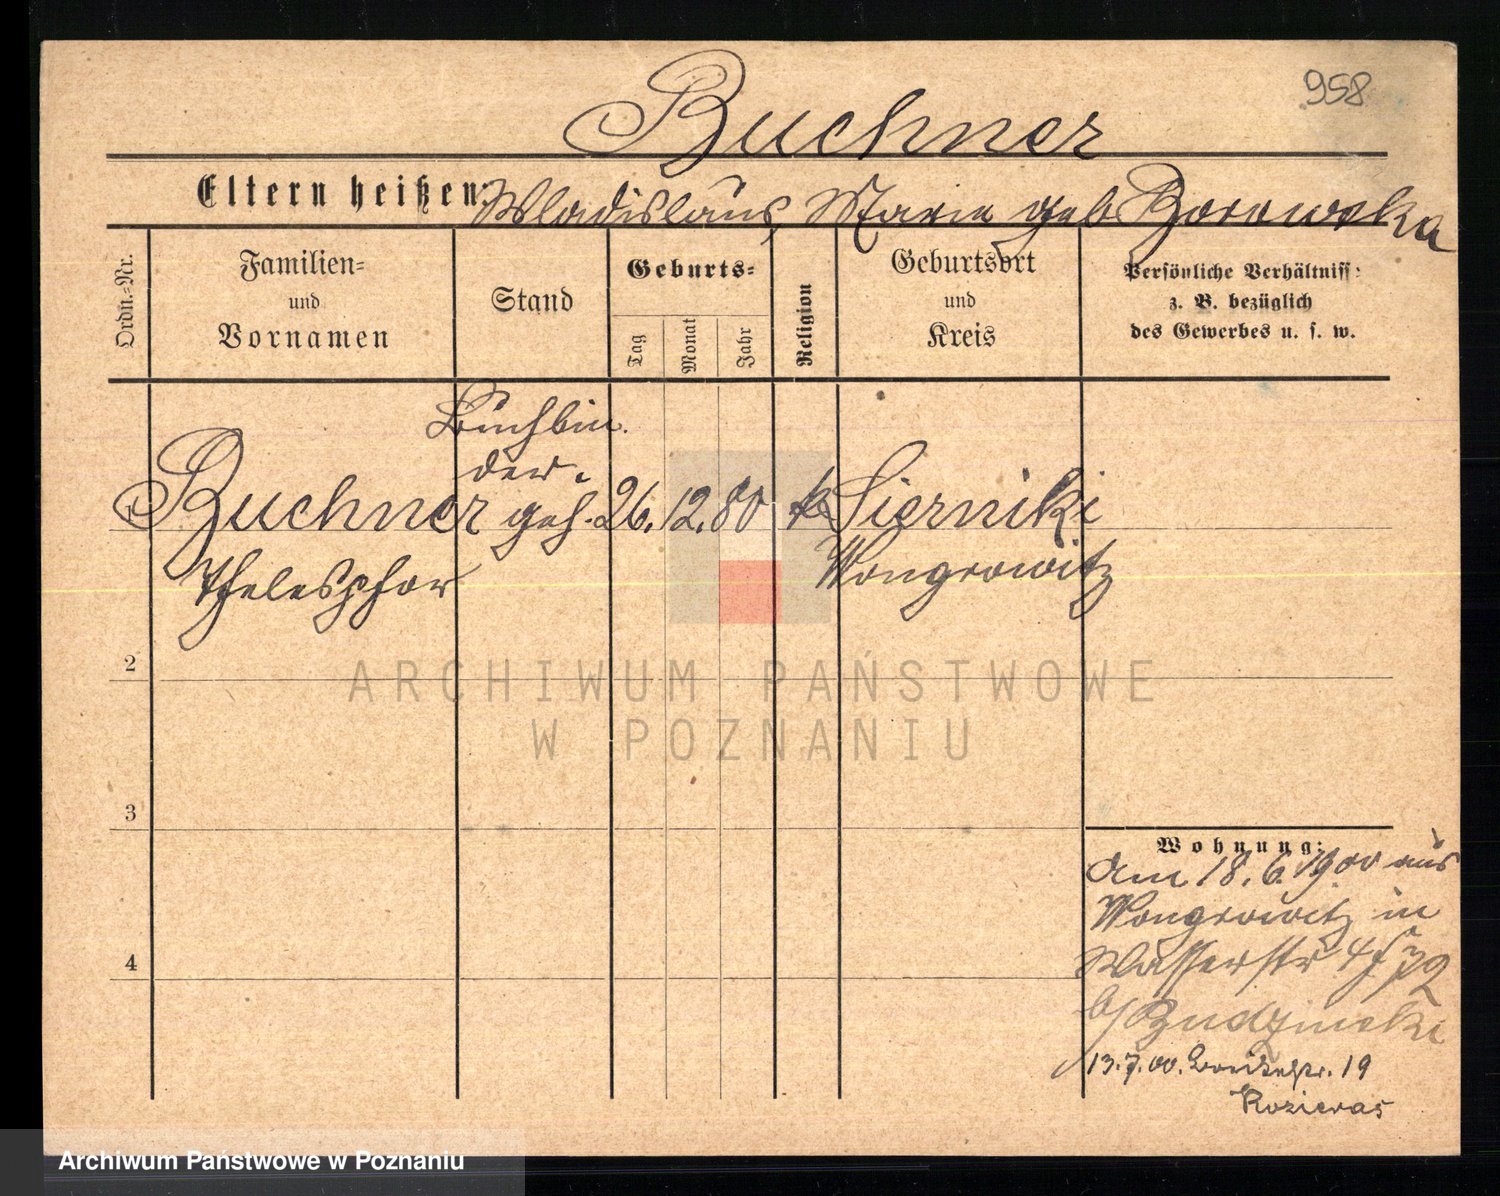 958
Buchner
Eltern heißen: Wladislaus, Marie geb. Borowska
Ordn.-Nr.
Familien-
und
Vornamen
Stand
Geburts-
Tag
Monat
Jahr
Religion
Geburtsort
und
Kreis
Persönliche Verhältniss:
z. B. bezüglich
des Gewerbes u. s. w.
1 Buchner Buchbin
der
geh. 26. 12. 80 k Sierniki
Thelesphor Wongrowitz
2
3
4
Wohnung:
Am 18.6.1900 aus
Wongrowitz in
Wasserstr
b/ Budzinski
13.7.00. Breitestr. 19
ARCHIWUM PAŃSTWOWE
W POZNANIU
Archiwum Państwowe w Poznaniu